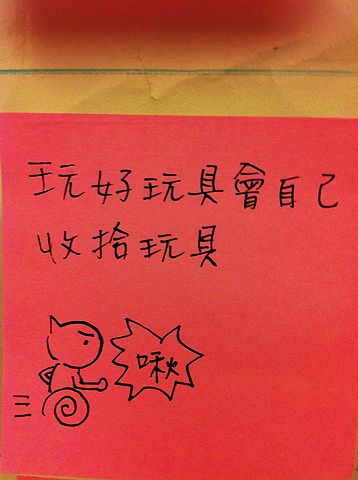 玩好玩具會自己
收拾玩具
啾